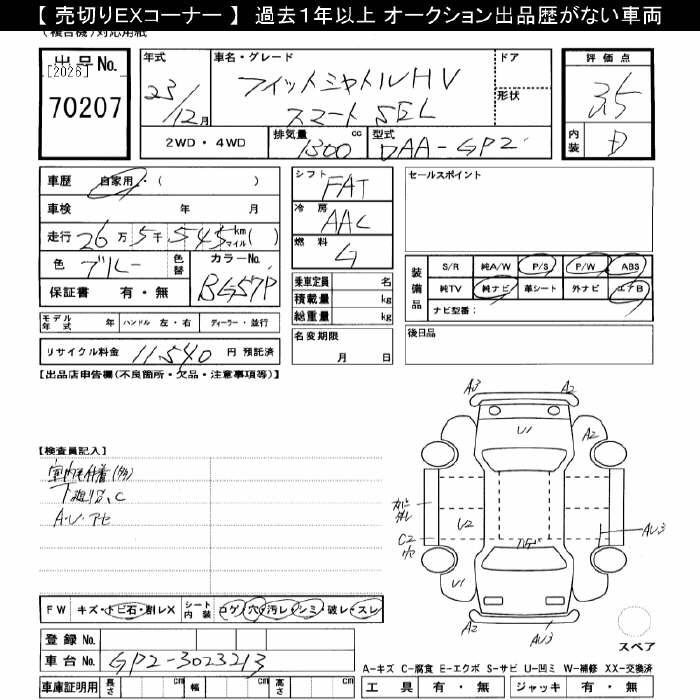 【 売切りEXコーナー 】 過去1年以上 オークション出品歴がない車両
(複合機)対応用紙
出品No.
[2026]
70207
年式
23/12月
車名・グレード
フィットシャトルHV
スマートSEL
ドア
形状
評価点
3.5
内装
D
2WD・4WD
排気量 1300 cc
型式 DAA-GP2
車歴 自家用・( )
車検 年 月
走行 26万5千545km マイル( )
色 ブルー 色替
カラーNo. BG57P
保証書 有・無
シフト FAT
冷房 AAC
燃料 G
乗車定員 名
積載量 kg
総重量 kg
セールスポイント
装備品
S/R 純A/W P/S P/W ABS
純TV 純ナビ 革シート 外ナビ エアB
ナビ型番:
モデル年式 年 ハンドル 左・右 ディーラー・並行
リサイクル料金 11,540 円 預託済
名変期限
月 日
後日品
【出品店申告欄(不良箇所・欠品・注意事項等)】
【検査員記入】
下廻りS、C
A・U・アセ
A3 A2
U1
A2
U2
C2
穴
AU3
U1
A2 AU3
スペア
FW キズ・トビ石・割レX
シート内装 コゲ・穴・汚レ・シミ・破レ・スレ
登録No.
車台No. GP2-3023213
車庫証明用 長さ cm 幅 cm 高さ cm
A-キズ C-腐食 E-エクボ S-サビ U-凹ミ W-補修 XX-交換済
工具 有・無 ジャッキ 有・無